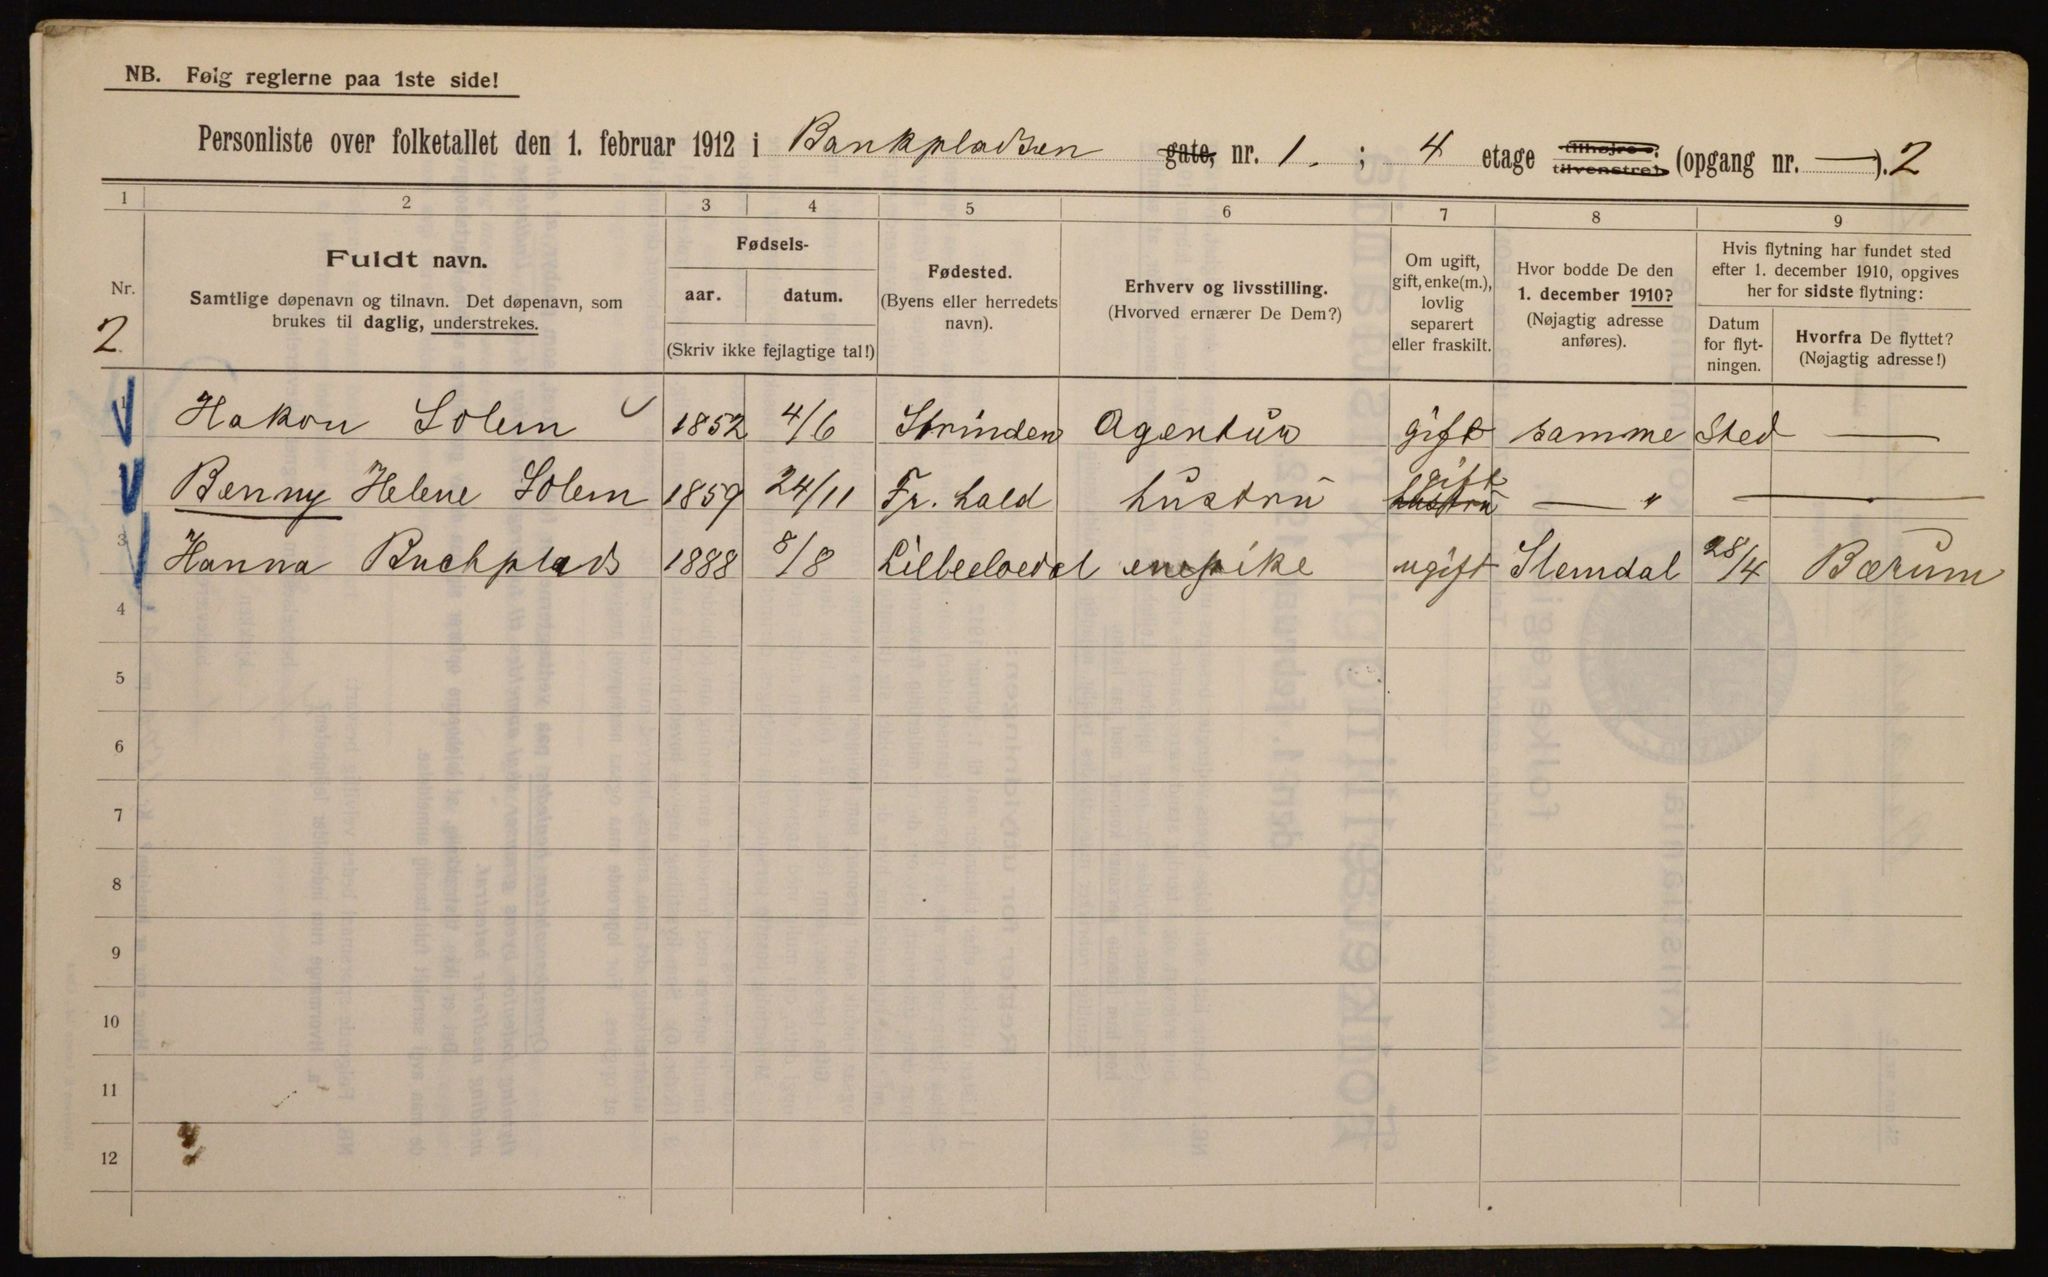 NB. Følg reglerne paa 1ste side!
Personliste over folketallet den 1. februar 1912 i Bankpladsen gate, nr. 1. ; 4 etage tilhøjre (opgang nr. — ). 2
tilvenstre
1 2 3 4 5 6 7 8 9
Nr.
2
Fuldt navn.
Samtlige døpenavn og tilnavn. Det døpenavn, som
brukes til daglig, understrekes.
Fødsels-
aar. datum.
(Skriv ikke fejlagtige tal!)
Fødested.
(Byens eller herredets
navn).
Erhverv og livsstilling.
(Hvorved ernærer De Dem?)
Om ugift,
gift, enke(m.),
lovlig
separert
eller fraskilt.
Hvor bodde De den
1. december 1910?
(Nøjagtig adresse
anføres).
Hvis flytning har fundet sted
efter 1. december 1910, opgives
her for sidste flytning:
Datum
for flyt-
ningen.
Hvorfra De flyttet?
(Nøjagtig adresse!)
1 Hakon Solem 1852 4/6 Strinden Agentur gift samme Sted —
Benny Helene Solem 1859 24/11 Fr. hald hustru hustru gift — " —
3 Hanna Buchplads 1888 8/8 enepike ugift Slemdal 28/4 Bærum
4
5
6
7
8
9
10
11
12